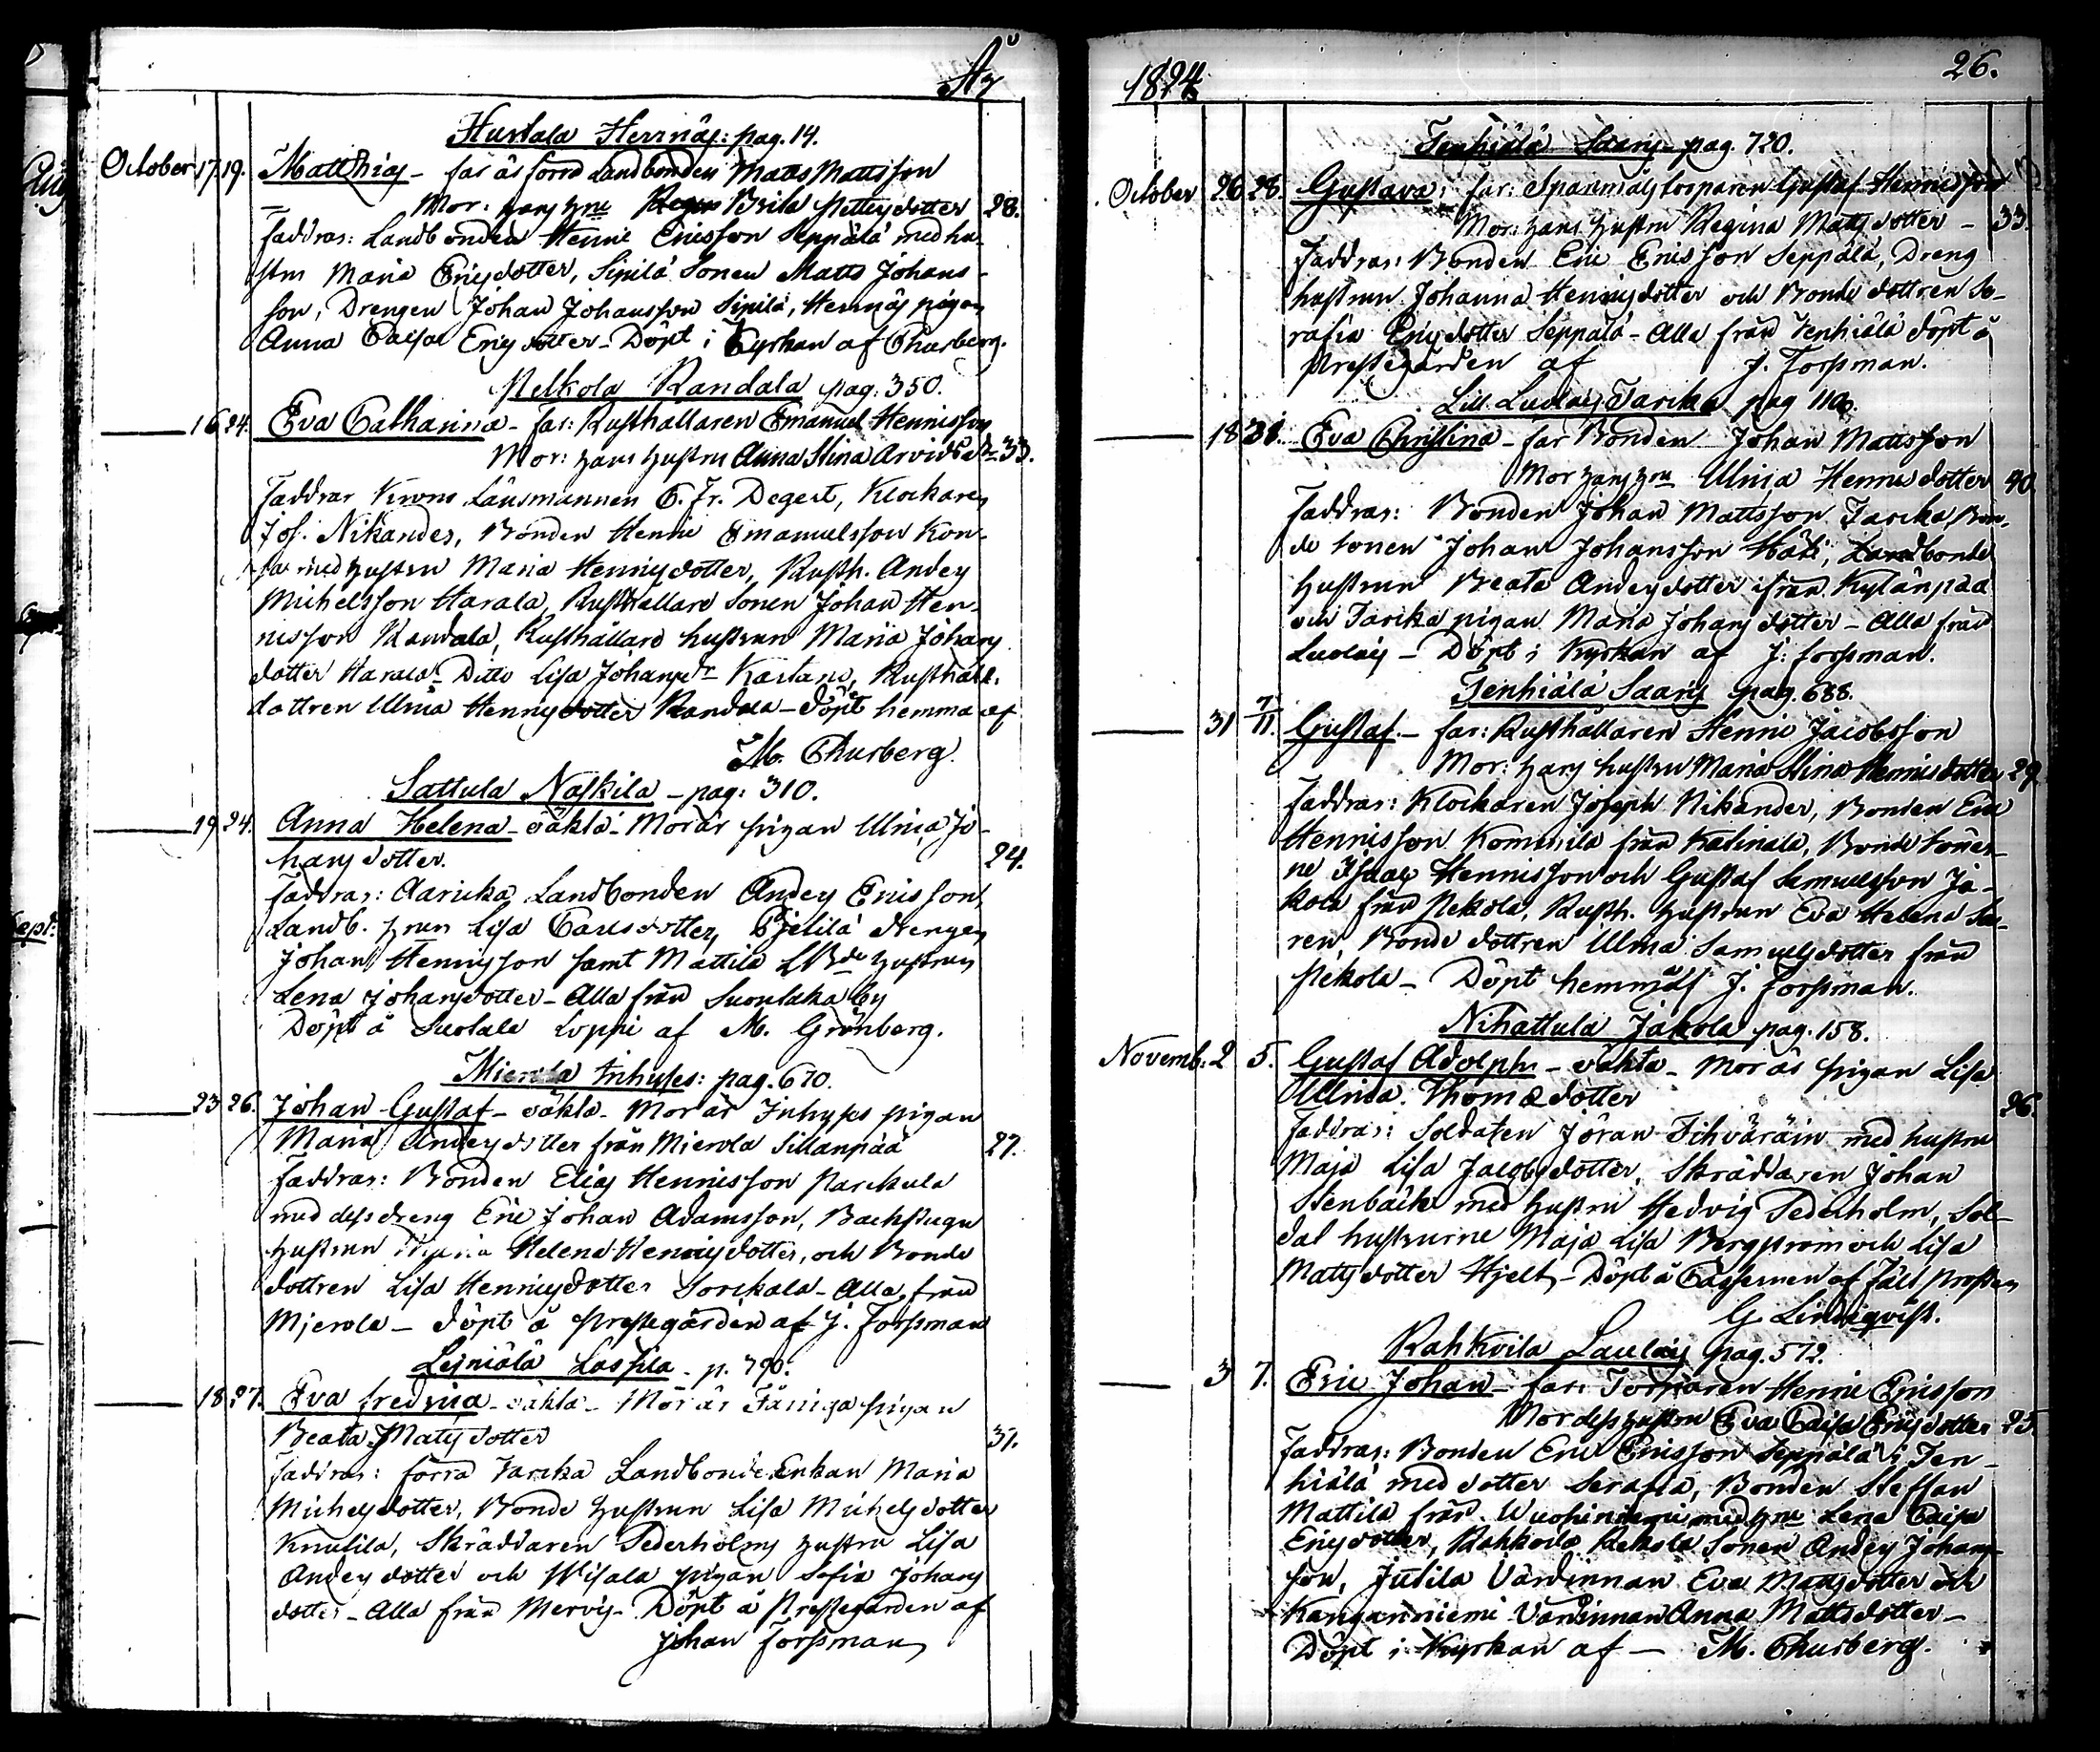 År
Hurtala Herrnäs: pag. 14.
October 17. 19. Matthias - far är förra Landbonden Matts Mattsson
Mor: hans hru Brita Pettersdotter 28.
Faddrar: Landbonden Henric Ericsson Seppälä med hu-
stru Maria Ericsdotter, Sipilä Sonen Matts Johans-
son, Drengen Johan Johansson Sipilä, Herrnäs pigan
Anna Caisa Ericsdotter - Döpt i Kyrkan af Thurberg.
Pelkola Randala pag. 350.
16 24. Eva Catharina - far: Rusthållaren Emanuel Henricsson
Mor: hans hustru Anna Stina Arvidsdr 33.
Faddrar Krono Länsmannen C. Fr. Degert, Klockaren
Jos. Nikander, Bonden Henric Emanuelsson Kon-
med hustru Maria Henricsdotter, Rusth. Anders
Michelsson Harala, Rusthållare Sonen Johan Hen-
ricsson Randala, Rusthållare hustrun Maria Johans
dotter Harala - Ditto Lisa Johansdr Kastari, Rusthåll.
dottren Ulrica Henricsdotter Randala - döpt hemma af
M. Thurberg.
Sattula Naskila - pag: 310.
19 24. Anna Helena - oäkta - Mor är pigan Ulrica Jo-
hansdotter. 24.
Faddrar: Landbonden Anders Ericsson
Landb. hrun Lisa Carlsdotter, drengen
Johan Henricsson samt Mattila LBde hustrun
Lena Johansdotter - Alla från by
Döpt å Loppi af M. Grönberg.
Mierola Inhyses: pag. 670.
23 26. Johan Gustaf - oäkta - Mor är Inhyses pigan
Maria Andersdotter från Mierola Sillanpää 27.
Faddrar: Bonden Elias Henricsson Parckula
med dess dreng Eric Johan Adamsson, Backstugu
hustrun Helena Henricsdotter, och Bonde
dottren Lisa Henricsdotter Sorckala - Alla från
Mierola - döpt å Prestegården af J. Forssman
Leiniälä Lassila - p. 790.
18 27. Eva Fredrica - oäkta - Mor är pigan
Beata Matsdotter 37.
Faddrar: förra Jarcka Landbonde Enkan Maria
Michelsdotter, Bonde hustrun Lisa Michelsdotter
Knutila, Skräddaren Sederholms hustru Lisa
Andersdotter och pigan Sofia Johans
dotter - Alla från Mervis - Döpt å Prestegården af
Johan Forssman
1824 26.
Tenhiälä Saaris pag. 720.
October 26 28. Gustava: far: torparen Gustaf Henricsson
Mor: hans hustru Regina Matsdotter - 33.
Faddrar: Bonden Eric Ericsson Seppälä, Dreng
hustrun Johanna Henricsdotter och Bonde dottren Se-
rafia Ericsdotter Seppälä - Alla från Tenhiälä döpt å
Prestegården af J. Forssman.
Lill Luolais Jarcka pag 110
18 31. Eva Christina - far Bonden Johan Mattsson
Mor hans hru Ulrica Henricsdotter 40.
Faddrar: Bonden Johan Mattsson Jarcka, Bon-
de sonen Johan Johansson Landbonde
hustrun Beata Andersdotter ifrån Kylänpää
och Jarcka pigan Maria Johansdotter - Alla från
Luolais - Döpt i Kyrkan af J. Forssman.
Tenhiälä Saaris pag. 688.
31 7/11. Gustaf - far: Rusthållaren Henric Jacobsson
Mor: hans hustru Maria Stina Henricsdotter 29.
Faddrar: Klockaren Joseph Nikander, Bonden Eric
Henricsson Kommila från Katinala, Bonde söner-
ne Isaac Henricsson och Gustaf Semuelsson Ja-
kola från Pekola, Rusth. hustrun Eva Helena
Bonde dottren Ulrica Samuelsdotter från
Pekola - Döpt hemma af J. Forssman.
Nihattula Jakola pag. 158.
Novemb: 2 5. Gustaf Adolph - oäkta - Mor är pigan Lisa
Ulrica Thomædotter 26.
Faddrar: Soldaten Jöran Tihväräin med hustru
Maja Lisa Jacobsdotter, Skräddaren Johan
Stenbäck med hustru Hedvig Sederholm, Sol-
dat hustrurne Maja Lisa Bergström och Lisa
Matsdotter Hjelt - Döpt å Casernen af Fält Prosten
G. Lindeqvist.
Rahkoila Laulais pag. 572.
3 7. Eric Johan - far: Torparen Henric Ericsson
Mor dess hustru Eva Caisa Ericsdotter 25.
Faddrar: Bonden Eric Ericsson Seppälä i Ten-
hiälä med dotter Serafia, Bonden Steffan
Mattila från Wuohiniemi med hru Lena Caisa
Ericsdotter, Rahkoila Rekola Sonen Anders Johans-
son, Jutila Värdinnan Eva Mattsdotter och
Kanganniemi Värdinnan Anna Mattsdotter -
Döpt i Kyrkan af - M. Thurberg.